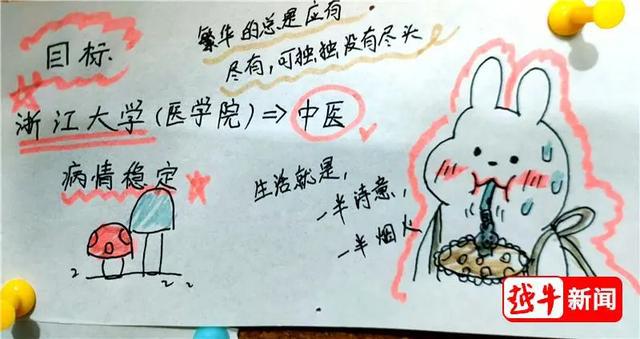 目标
繁华的总是应有
尽有，可独独没有尽头
浙江大学（医学院）⇒中医
病情稳定
生活就是，
一半诗意，
一半烟火
越牛新闻